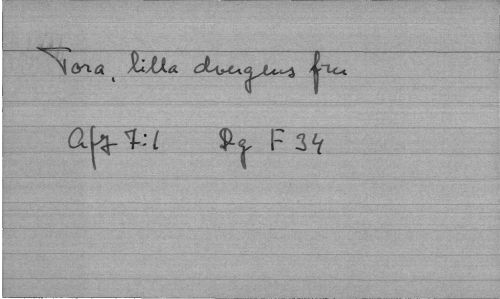 Tora, lilla dvergens fru
Afz 7:1 Dg F 34